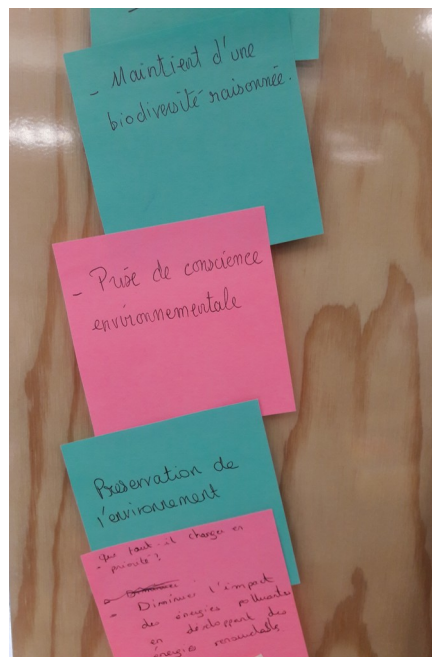 - Maintient d'une
biodiversité raisonnée.
- Prise de conscience
environnementale
Préservation de
l'environnement
Que faut-il changer en
priorité?
- Diminuer l'impact
des énergies polluantes
en développant des
énergies renouvelables